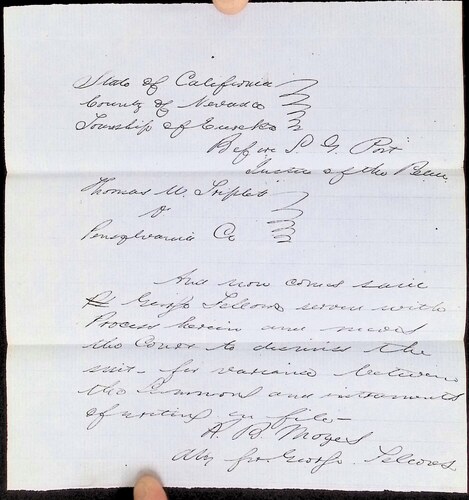 State of California
County of Nevada
Township of Eureka
Before S. G. Post
Justice of the Peace
Thomas W. Triplett
v
Pennsylvania Co
And now comes said
George Fellows served with
Process herein and moves
the Court to dismiss the
suit for variance between
the Summons and instruments
of writing on file
A. B. Moyers
Atty for George Fellows